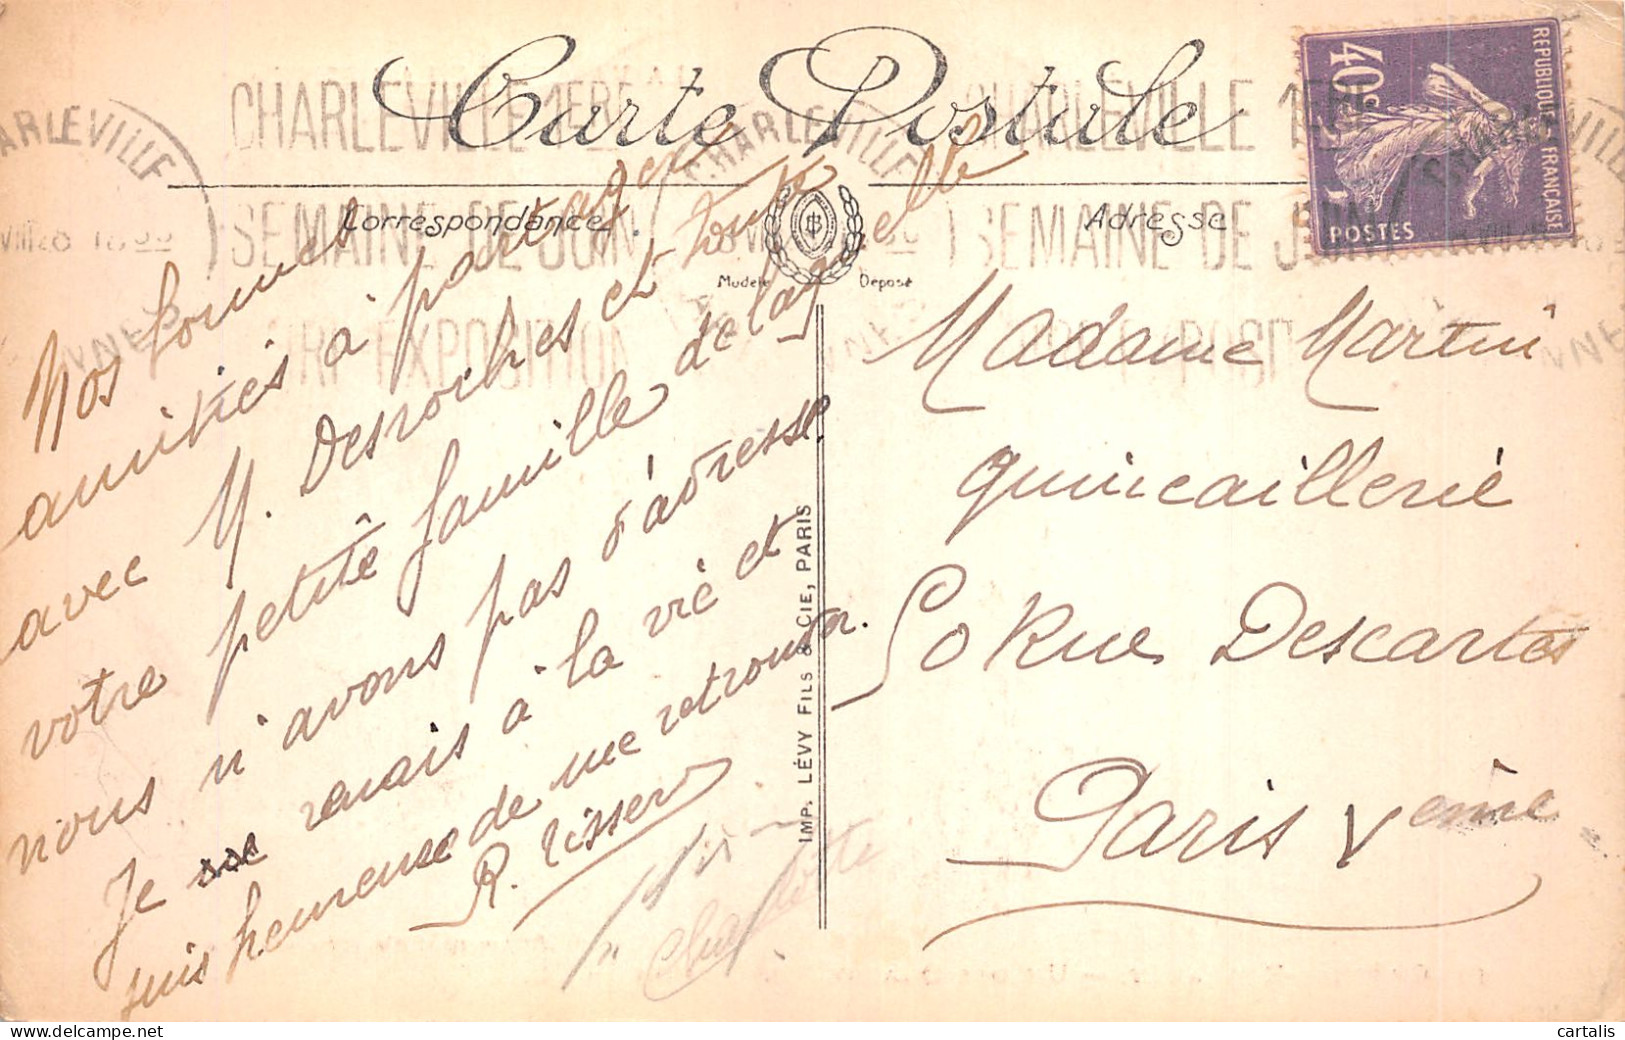 Carte Postale
CHARLEVILLE 1ERE
CHARLEVILLE
SEMAINE DE JUIN
EXPOSITION
CHARLEVILLE
CHARLEVILLE 1
SEMAINE DE J
REPUBLIQUE FRANÇAISE
40c
POSTES
Correspondance
Adresse
Modèle Déposé
Nos bonnes
amitiés à partager
avec M. Desroches et toute
votre petite famille de laquelle
nous n'avons pas d'adresse.
Je renais à la vie et
suis heureuse de me retrouver.
R. Tisser
Charlotte
IMP. LÉVY FILS & CIE, PARIS
Madame Martin
quincaillerie
50 Rue Descartes
Paris Vème
cartalis